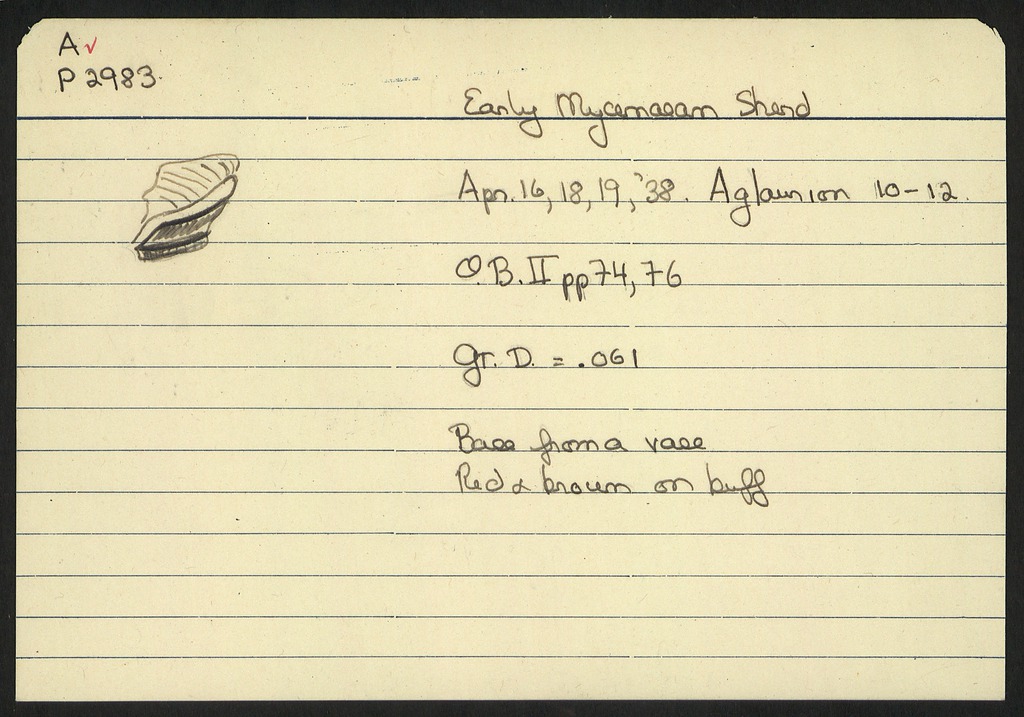 A ✓
P 2983.
Early Mycenaean Sherd
Apr. 16, 18, 19, '38. Aglaurion 10-12.
O.B. II pp 74, 76
Gr. D. = .061
Base from a vase
Red & brown on buff